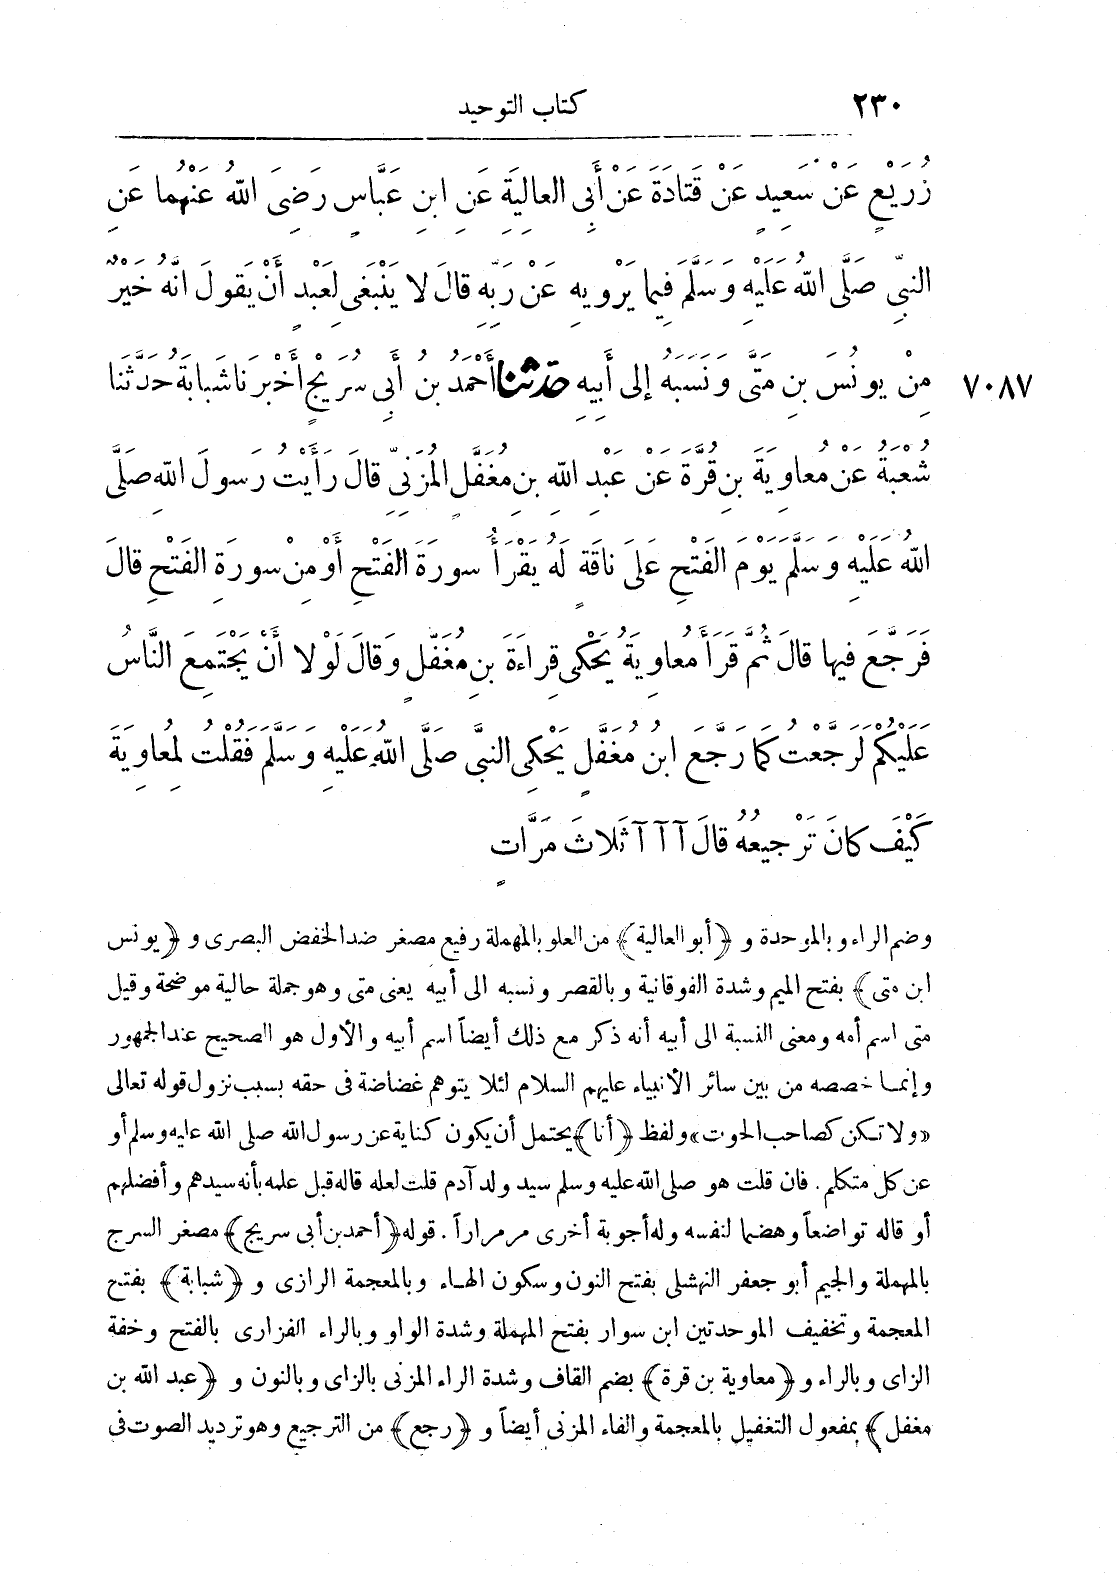 ٢٣٠ كتاب التوحيد
زُرَيْعٍ عَنْ سَعِيدٍ عَنْ قَتادَةَ عَنْ أَبِى العالِيَةِ عَنِ ابنِ عَبَّاسٍ رَضِىَ اللهُ عَنْهُما عَنِ
النبىِّ صَلَّى اللهُ عَلَيْهِ وَسَلَّمَ فِيما يَرْوِيهِ عَنْ رَبِّهِ قالَ لا يَنْبَغِى لِعَبْدٍ أَنْ يَقُولَ انَّهُ خَيْرٌ
مِنْ يُونُسَ بنِ مَتَّى وَنَسَبَهُ إلى أَبِيهِ حَدَّثَنَا أَحْمَدُ بنُ أَبِى سُرَيْجٍ أَخْبَرَنا شَبابَةُ حَدَّثَنا
٧٠٨٧
شُعْبَةُ عَنْ مُعاوِيَةَ بنِ قُرَّةَ عَنْ عَبْدِ اللهِ بنِ مُغَفَّلٍ المُزَنِىِّ قالَ رَأَيْتُ رَسولَ اللهِ صَلَّى
اللهُ عَلَيْهِ وَسَلَّمَ يَوْمَ الفَتْحِ عَلَى ناقَةٍ لَهُ يَقْرَأُ سورَةَ الفَتْحِ أَوْ مِنْ سورَةِ الفَتْحِ قالَ
فَرَجَّعَ فيها قالَ ثُمَّ قَرَأَ مُعاوِيَةُ يَحْكِى قِراءَةَ بنِ مُغَفَّلٍ وَقالَ لَوْلا أَنْ يَجْتَمِعَ النَّاسُ
عَلَيْكُمْ لَرَجَّعْتُ كَما رَجَّعَ ابنُ مُغَفَّلٍ يَحْكِى النبىَّ صَلَّى اللهُ عَلَيْهِ وَسَلَّمَ فَقُلْتُ لِمُعاوِيَةَ
كَيْفَ كانَ تَرْجِيعُهُ قالَ آ آ آ ثَلاثَ مَرَّاتٍ
وضم الراء وبالموحدة و ﴿أبو العالية﴾ من العلو بالمهملة رفيع مصغر ضد الخفض البصرى و ﴿يونس
ابن متى﴾ بفتح الميم وشدة الفوقانية وبالقصر ونسبه الى أبيه يعنى متى وهو جملة حالية موضحة وقيل
متى اسم أمه ومعنى النسبة الى أبيه أنه ذكر مع ذلك أيضاً اسم أبيه والأول هو الصحيح عند الجمهور
وإنمـا خصصه من بين سائر الأنبياء عليهم السلام لئلا يتوهم غضاضة فى حقه بسبب نزول قوله تعالى
«ولا تكن كصاحب الحوت» ولفظ ﴿أنا﴾ يحتمل أن يكون كناية عن رسول الله صلى الله عليه وسلم أو
عن كل متكلم . فان قلت هو صلى الله عليه وسلم سيد ولد آدم قلت لعله قاله قبل علمه بأنه سيدهم وأفضلهم
أو قاله تواضعاً وهضما لنفسه وله أجوبة أخرى مر مراراً . قوله ﴿أحمد بن أبى سريج﴾ مصغر السرج
بالمهملة والجيم أبو جعفر النهشلى بفتح النون وسكون الهـاء وبالمعجمة الرازى و ﴿شبابة﴾ بفتح
المعجمة وتخفيف الموحدتين ابن سوار بفتح المهملة وشدة الواو وبالراء الفزارى بالفتح وخفة
الزاى وبالراء و ﴿معاوية بن قرة﴾ بضم القاف وشدة الراء المزنى بالزاى وبالنون و ﴿عبد الله بن
مغفل﴾ بمفعول التغفيل بالمعجمة والفاء المزنى أيضاً و ﴿رجع﴾ من الترجيع وهو ترديد الصوت فى